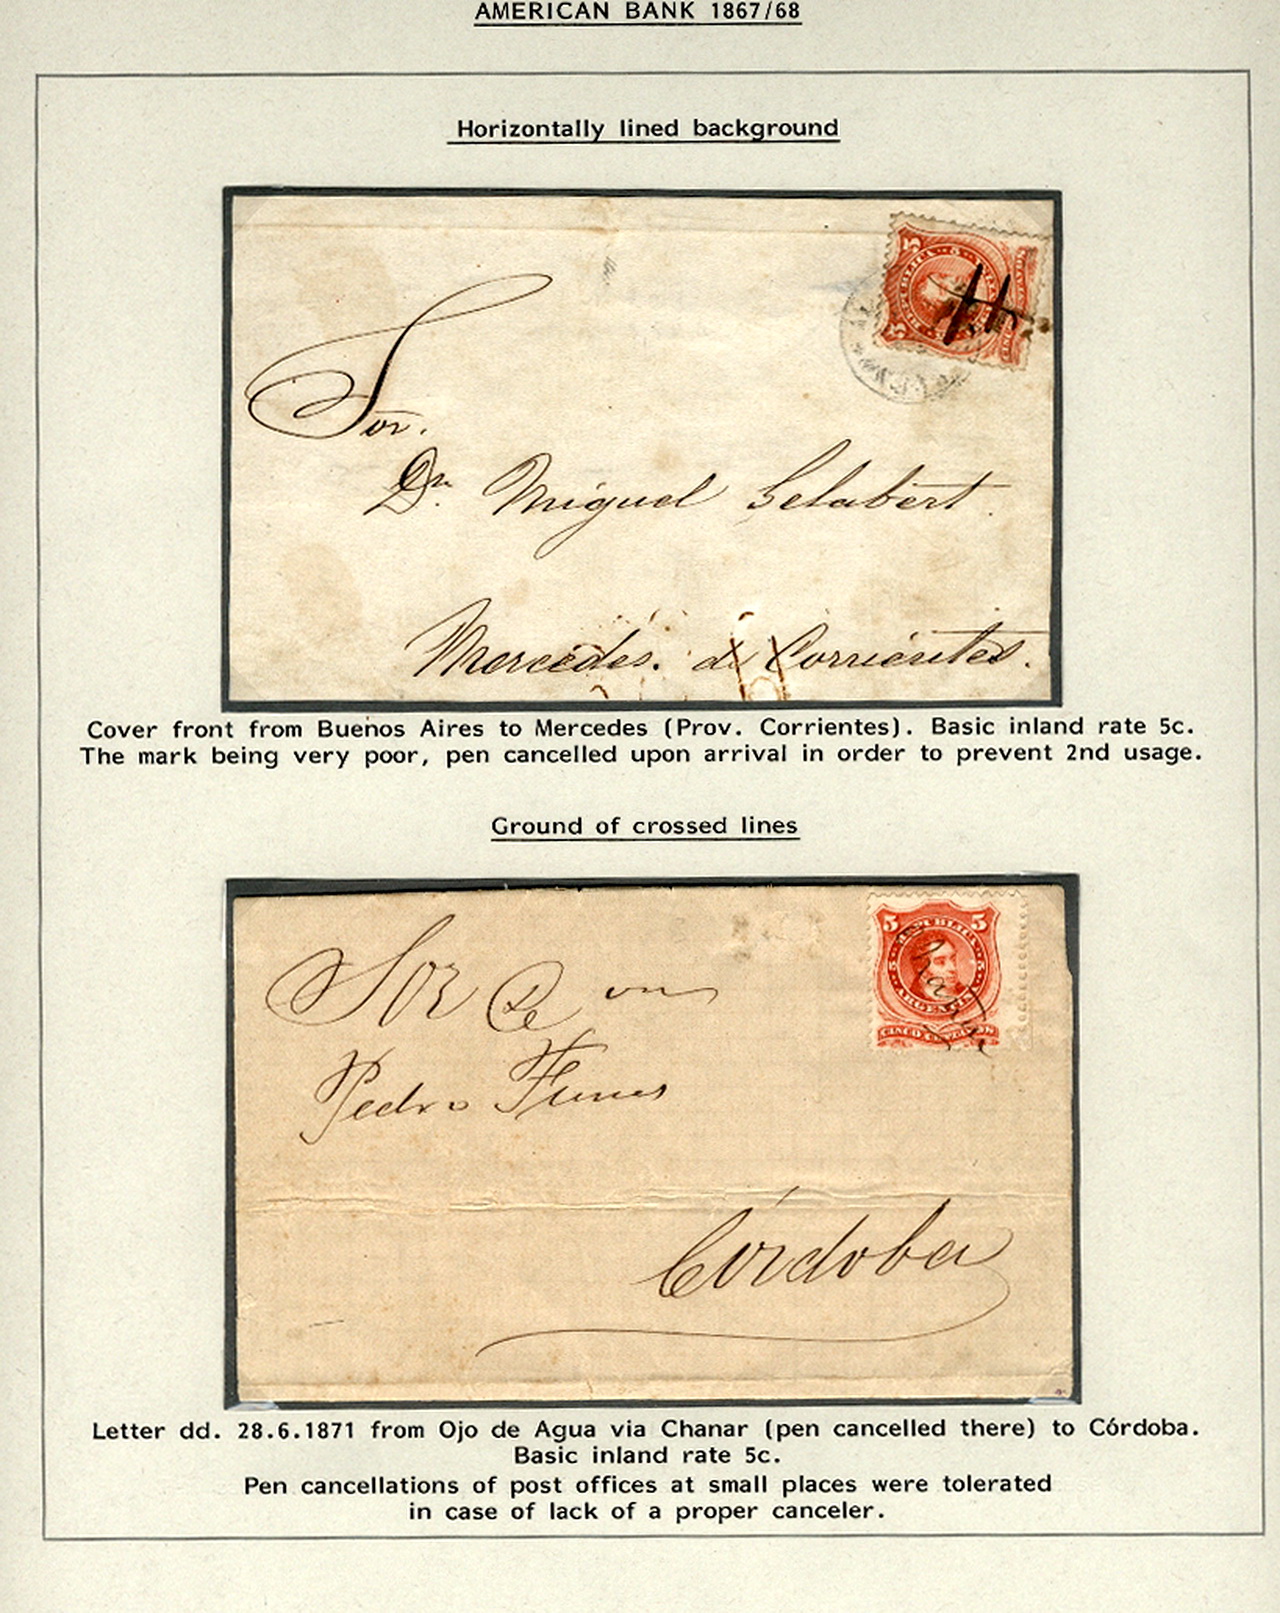 AMERICAN BANK 1867/68
Horizontally lined background
5
Sor.
Dn. Miguel Gelabert.
Mercedes. de Corrientes.
Cover front from Buenos Aires to Mercedes (Prov. Corrientes). Basic inland rate 5c.
The mark being very poor, pen cancelled upon arrival in order to prevent 2nd usage.
Ground of crossed lines
5 5
REPUBLICA
5 5
ARGENTINA
CINCO CENTAVOS
Sor Dn
Pedro Funes
Córdoba
Letter dd. 28.6.1871 from Ojo de Agua via Chanar (pen cancelled there) to Córdoba.
Basic inland rate 5c.
Pen cancellations of post offices at small places were tolerated
in case of lack of a proper canceler.